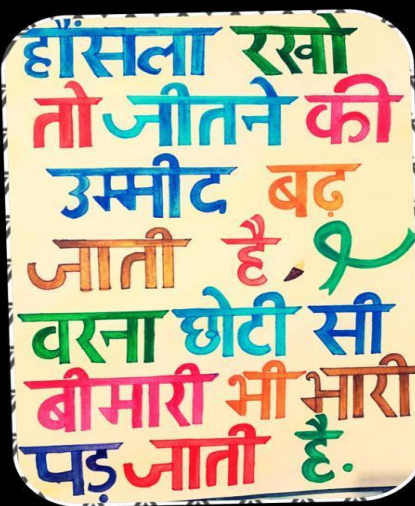 हौंसला रखो
तो जीतने की
उम्मीद बढ़
जाती है,
वरना छोटी सी
बीमारी भी भारी
पड़ जाती है.